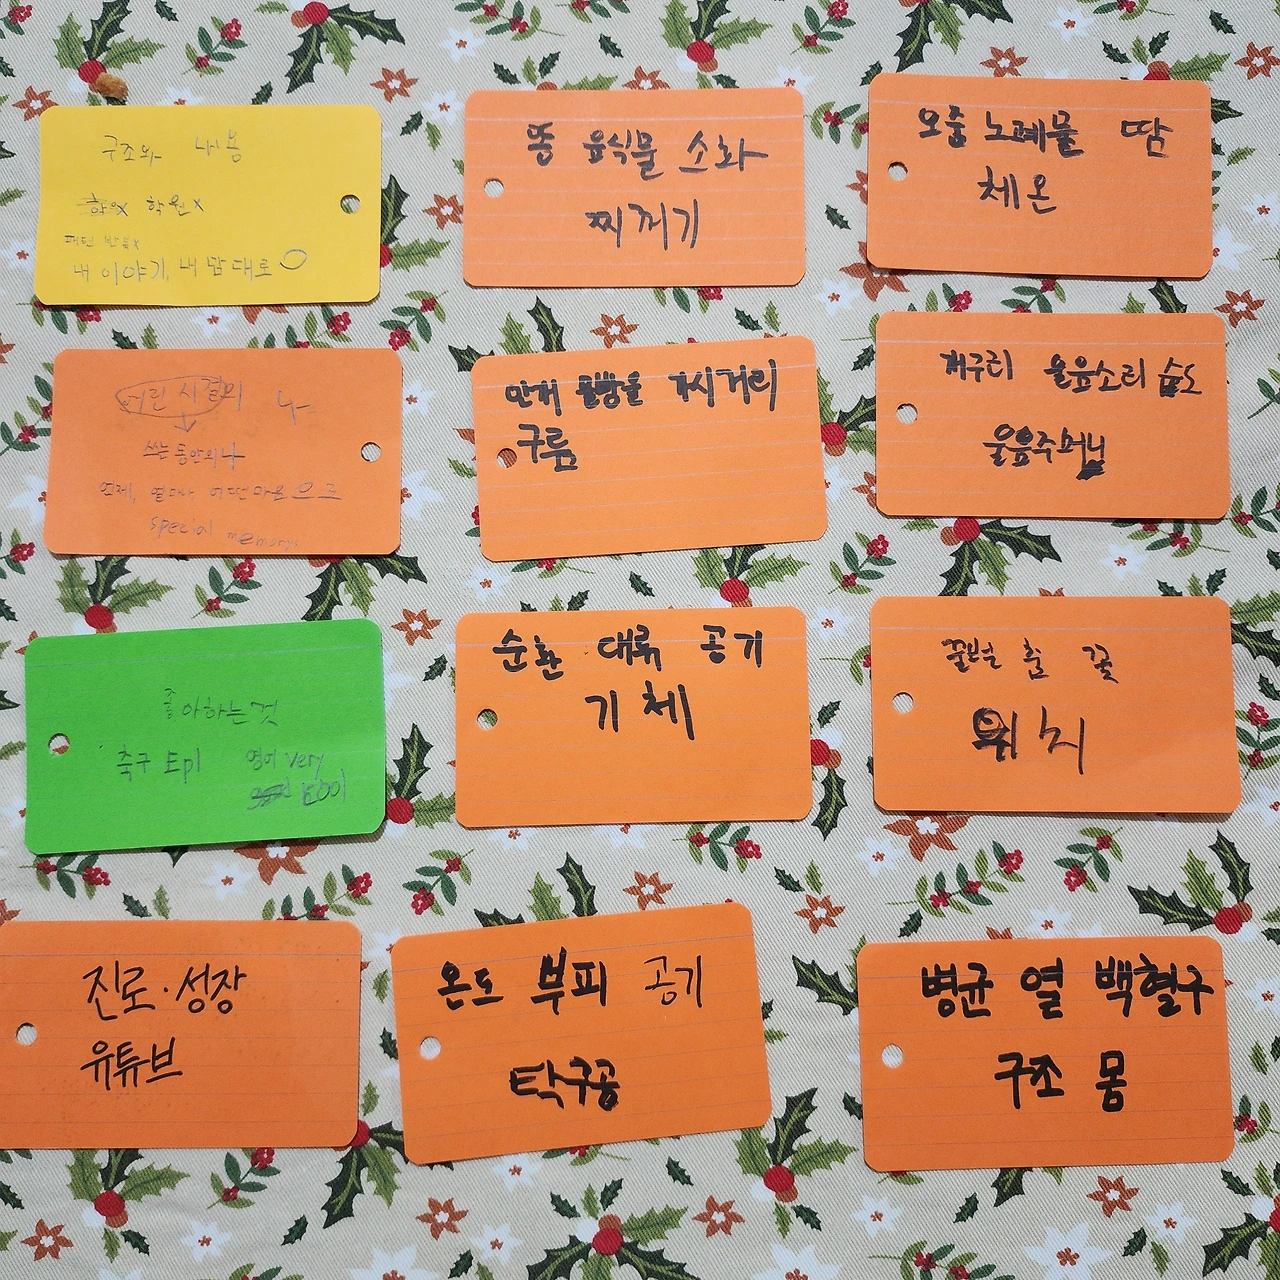 구조와 내용
학원x
패턴 반복x
내 이야기, 내 맘대로 O
똥 음식물 소화
찌꺼기
오줌 노폐물 땀
체온
어린 시절의 나
쓰는 동안의 나
언제, 얼마나 어떤마음으로
special memory
안개 물방울 가시거리
구름
개구리 울음소리 습도
울음주머니
좋아하는것
축구 Epl 영어 very
cool
순환 대류 공기
기체
꿀벌 춤 꽃
위치
진로·성장
유튜브
온도 부피 공기
탁구공
병균 열 백혈구
구조 몸